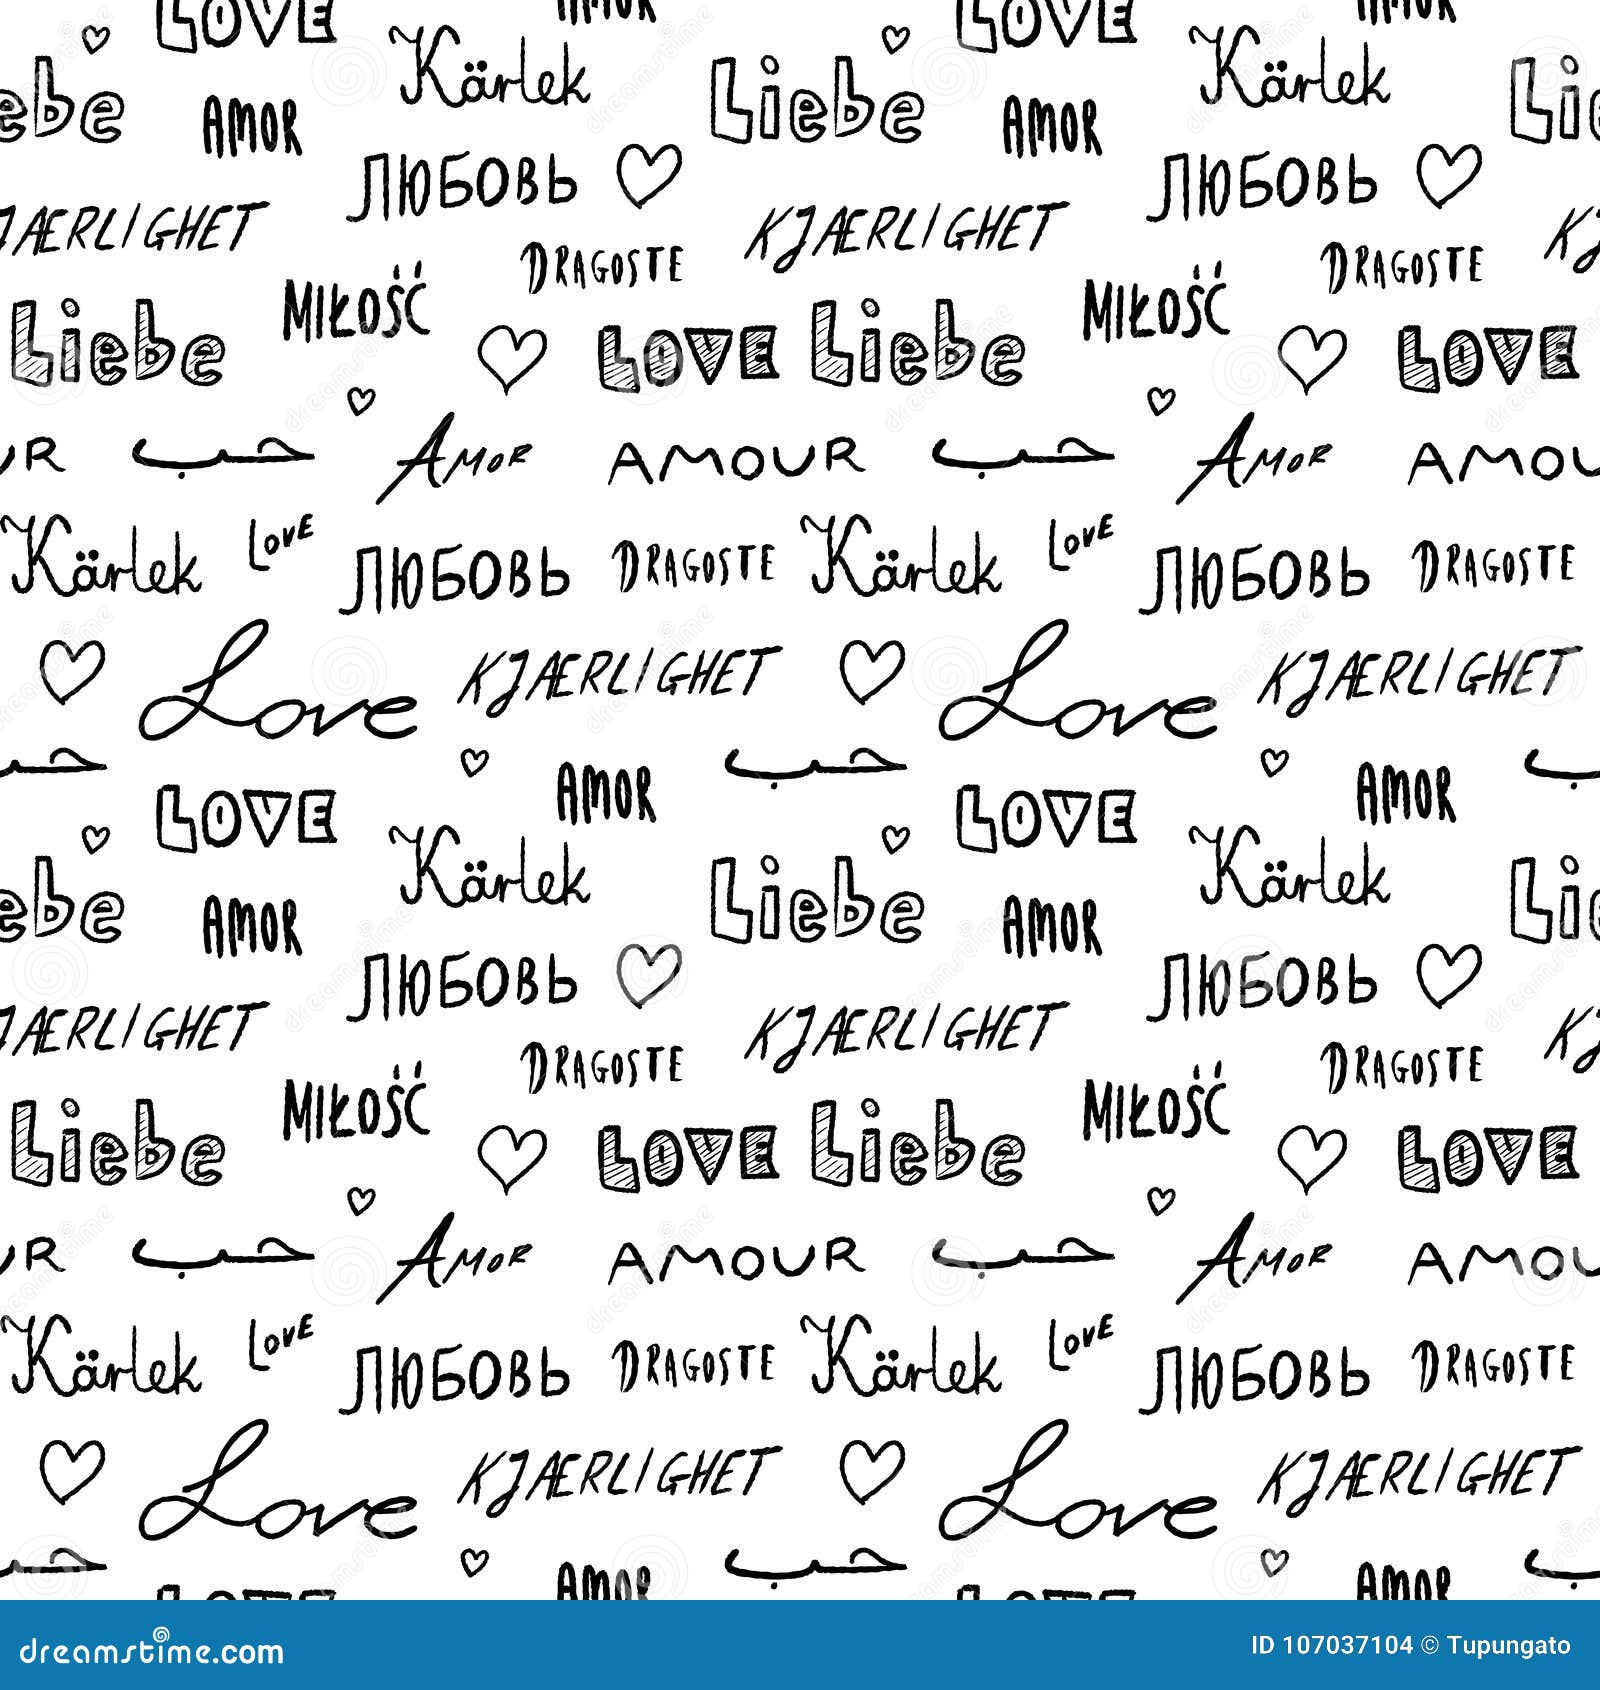 LOVE AMOR LOVE AMOR
Kärlek Kärlek
ebe AMOR Liebe AMOR Lie
ЛЮБОВЬ ЛЮБОВЬ
JÆRLIGHET KJÆRLIGHET KJ
DRAGOSTE DRAGOSTE
MIŁOŚĆ MIŁOŚĆ
Liebe LOVE Liebe LOVE
UR حب AMOR AMOUR حب AMOR AMOU
Kärlek LOVE ЛЮБОВЬ DRAGOSTE Kärlek LOVE ЛЮБОВЬ DRAGOSTE
Love KJÆRLIGHET Love KJÆRLIGHET
حب حب
LOVE AMOR LOVE AMOR
Kärlek Kärlek
ebe AMOR Liebe AMOR Lie
ЛЮБОВЬ ЛЮБОВЬ
JÆRLIGHET KJÆRLIGHET KJ
DRAGOSTE DRAGOSTE
MIŁOŚĆ MIŁOŚĆ
Liebe LOVE Liebe LOVE
UR حب AMOR AMOUR حب AMOR AMOU
Kärlek LOVE ЛЮБОВЬ DRAGOSTE Kärlek LOVE ЛЮБОВЬ DRAGOSTE
Love KJÆRLIGHET Love KJÆRLIGHET
حب حب
AMOR AMOR
dreamstime.com ID 107037104 © Tupungato